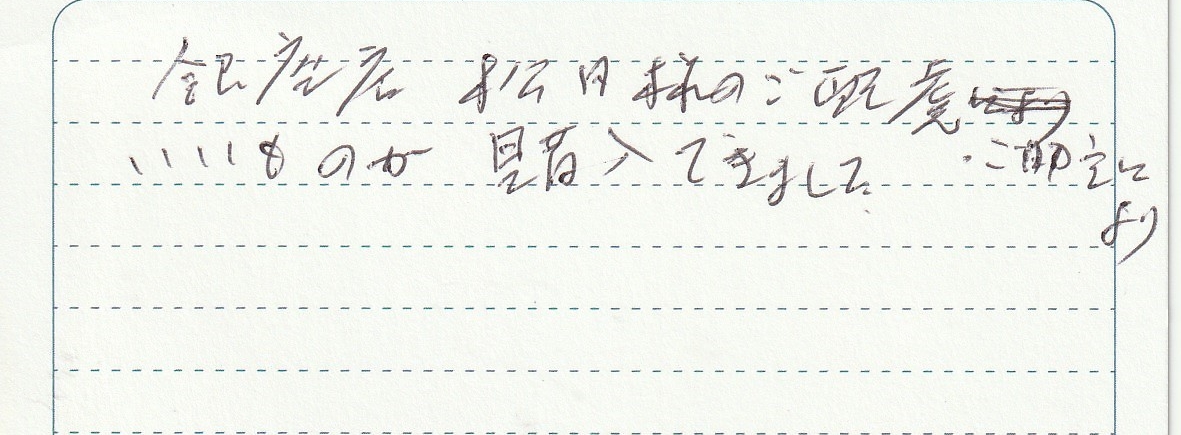 銀座店 松田様のご配慮
いいものが購入できました ・ご助言に
より